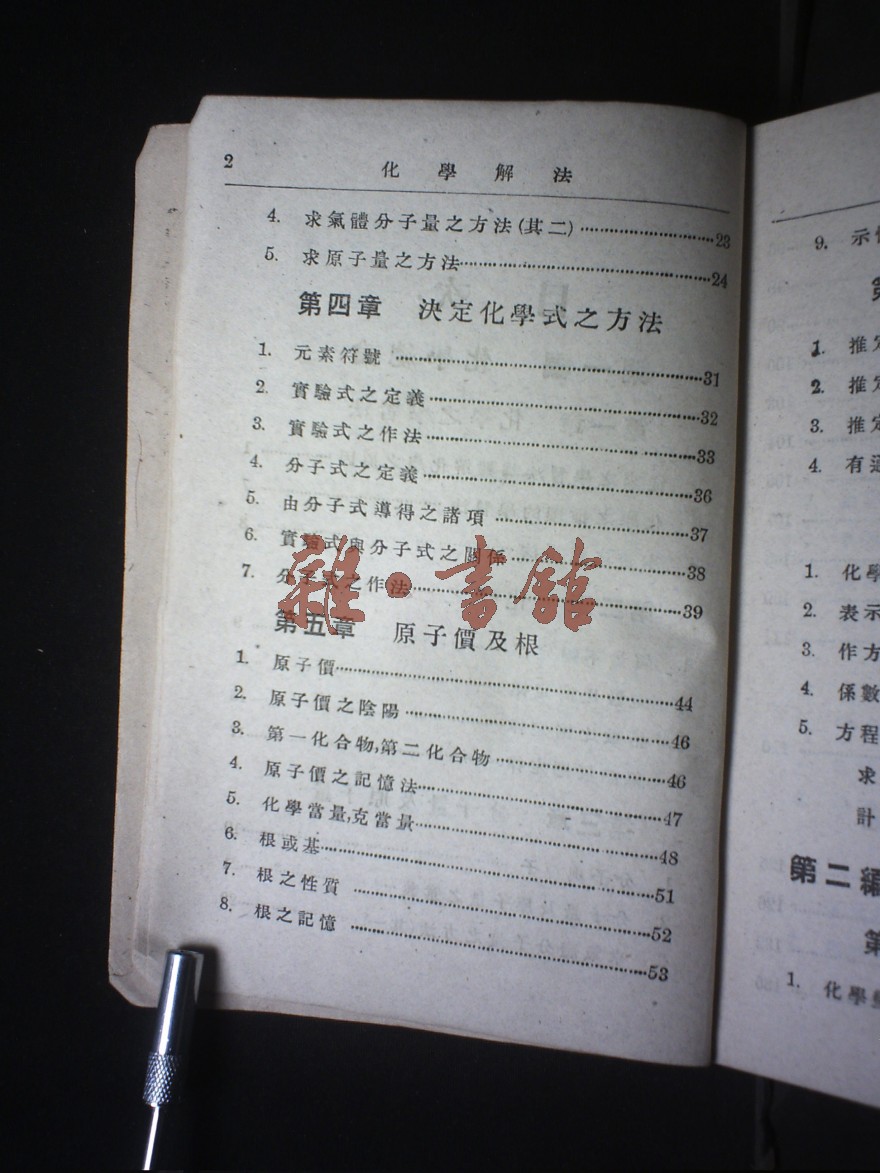 2 化學解法
4. 求氣體分子量之方法(其二)……23
5. 求原子量之方法……24
第四章 決定化學式之方法
1. 元素符號……31
2. 實驗式之定義……32
3. 實驗式之作法……33
4. 分子式之定義……36
5. 由分子式導得之諸項……37
6. 實驗式與分子式之關係……38
7. 分子式之作法……39
第五章 原子價及根
1. 原子價……44
2. 原子價之陰陽……46
3. 第一化合物,第二化合物……46
4. 原子價之記憶法……47
5. 化學當量,克當量……48
6. 根或基……51
7. 根之性質……52
8. 根之記憶……53
雜·書館
9. 示
第
1. 推定
2. 推定
3. 推定
4. 有
1. 化學
2. 表示
3. 作方
4. 係數
5. 方程
求
計
第二編
第
1. 化學